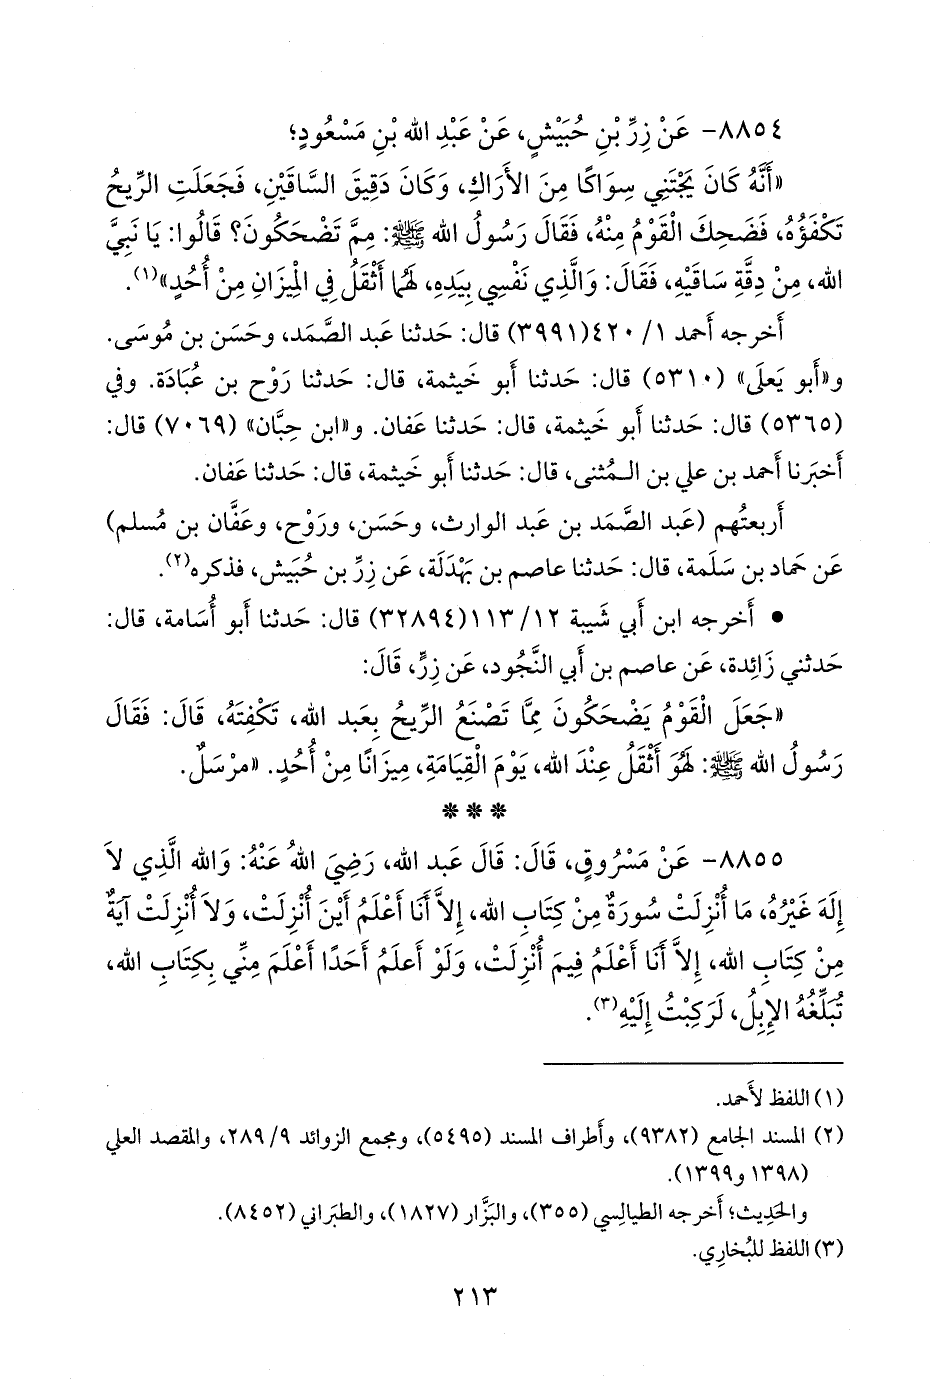 ٨٨٥٤- عَنْ زِرِّ بْنِ حُبَيْشٍ، عَنْ عَبْدِ الله بْنِ مَسْعُودٍ؛
«أَنَّهُ كَانَ يَجْتَنِي سِوَاكًا مِنَ الأَرَاكِ، وَكَانَ دَقِيقَ السَّاقَيْنِ، فَجَعَلَتِ الرِّيحُ
تَكْفَؤُهُ، فَضَحِكَ الْقَوْمُ مِنْهُ، فَقَالَ رَسُولُ الله ﷺ: مِمَّ تَضْحَكُونَ؟ قَالُوا: يَا نَبِيَّ
الله، مِنْ دِقَّةِ سَاقَيْهِ، فَقَالَ: وَالَّذِي نَفْسِي بِيَدِهِ، لَهُمَا أَثْقَلُ فِي الْمِيزَانِ مِنْ أُحُدٍ»(١).
أَخرجه أَحمد ١/ ٤٢٠(٣٩٩١) قال: حَدثنا عَبد الصَّمَد، وحَسَن بن مُوسَى.
و«أَبو يَعلَى» (٥٣١٠) قال: حَدثنا أَبو خَيثمة، قال: حَدثنا رَوْح بن عُبَادَة. وفي
(٥٣٦٥) قال: حَدثنا أَبو خَيثمة، قال: حَدثنا عَفان. و«ابن حِبَّان» (٧٠٦٩) قال:
أَخبَرنا أَحمد بن علي بن الـمُثنى، قال: حَدثنا أَبو خَيثمة، قال: حَدثنا عَفان.
أَربعتُهم (عَبد الصَّمَد بن عَبد الوارث، وحَسَن، ورَوْح، وعَفَّان بن مُسلم)
عَن حَماد بن سَلَمة، قال: حَدثنا عاصم بن بَهْدَلَة، عَن زِرِّ بن حُبَيش، فذكره(٢).
• أَخرجه ابن أَبي شَيبة ١٢/ ١١٣(٣٢٨٩٤) قال: حَدثنا أَبو أُسَامة، قال:
حَدثني زَائِدة، عَن عاصم بن أَبي النَّجُود، عَن زِرٍّ، قَالَ:
«جَعَلَ الْقَوْمُ يَضْحَكُونَ مِمَّا تَصْنَعُ الرِّيحُ بِعَبد الله، تَكْفِتَهُ، قَالَ: فَقَالَ
رَسُولُ الله ﷺ: لَهُوَ أَثْقَلُ عِنْدَ الله، يَوْمَ الْقِيَامَةِ، مِيزَانًا مِنْ أُحُدٍ. «مرْسَلٌ.
***
٨٨٥٥- عَنْ مَسْرُوقٍ، قَالَ: قَالَ عَبد الله، رَضِيَ اللهُ عَنْهُ: وَالله الَّذِي لاَ
إِلَهَ غَيْرُهُ، مَا أُنْزِلَتْ سُورَةٌ مِنْ كِتَابِ الله، إِلاَّ أَنَا أَعْلَمُ أَيْنَ أُنْزِلَتْ، وَلاَ أُنْزِلَتْ آيَةٌ
مِنْ كِتَابِ الله، إِلاَّ أَنَا أَعْلَمُ فِيمَ أُنْزِلَتْ، وَلَوْ أَعلَمُ أَحَدًا أَعْلَمَ مِنِّي بِكِتَابِ الله،
تُبَلِّغُهُ الإِبِلُ، لَرَكِبْتُ إِلَيْهِ(٣).
(١) اللفظ لأَحمد.
(٢) المسند الجامع (٩٣٨٢)، وأَطراف المسند (٥٤٩٥)، ومجمع الزوائد ٩/ ٢٨٩، والمقصد العلي
(١٣٩٨ و١٣٩٩).
والحَدِيث؛ أَخرجه الطيالِسي (٣٥٥)، والبَزَّار (١٨٢٧)، والطبَراني (٨٤٥٢).
(٣) اللفظ للبُخارِي.
٢١٣